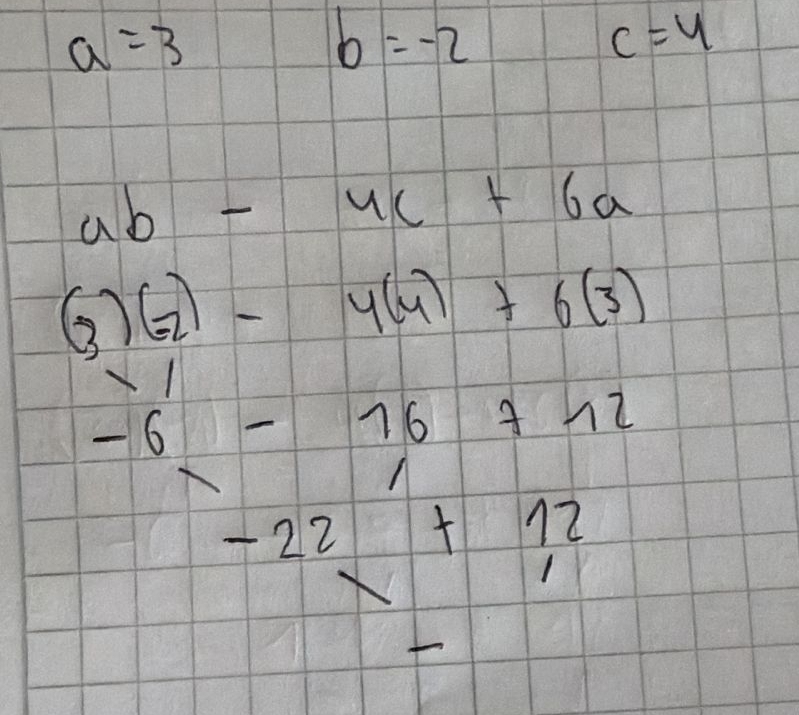 a = 3 b = -2 c = 4
ab - 4c + 6a
(3)(-2) - 4(4) + 6(3)
-6 - 16 + 12
-22 + 12
-